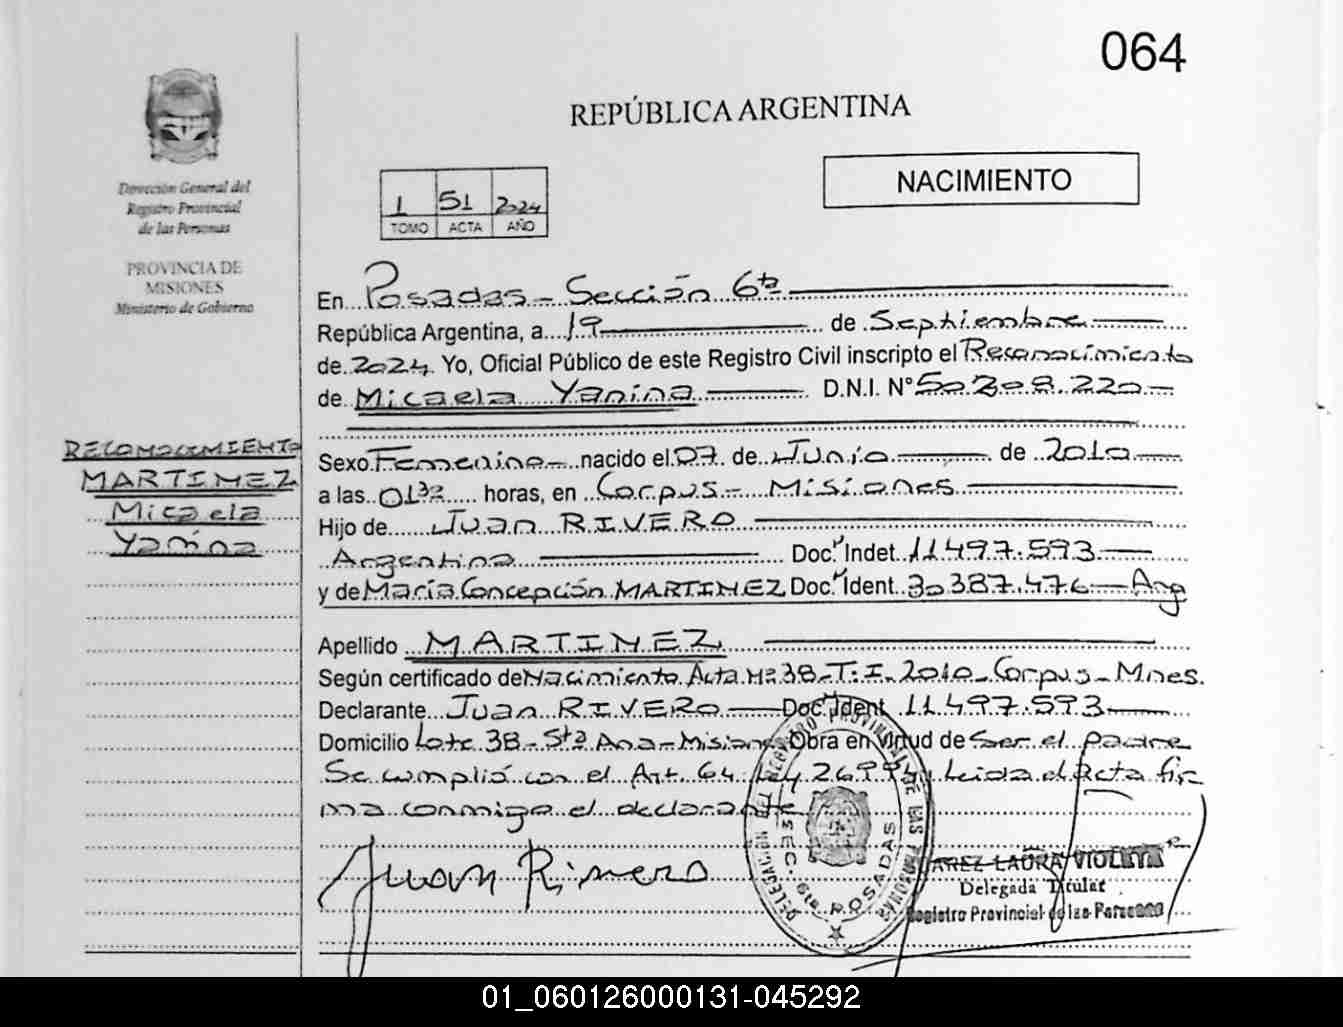 064
REPÚBLICA ARGENTINA
NACIMIENTO
Dirección General del
Registro Provincial
de las Personas
PROVINCIA DE
MISIONES
Ministerio de Gobierno
1 51 2024
TOMO ACTA AÑO
En Posadas - Sección 6ta
República Argentina, a 19 de Septiembre
de 2024 Yo, Oficial Público de este Registro Civil inscripto el Reconocimiento
de Micaela Yanina D.N.I. Nº 50.208.220
RECONOCIMIENTO
MARTINEZ
Micaela
Yanina
Sexo Femenino nacido el 07 de Junio de 2010
a las 01³² horas, en Corpus - Misiones
Hijo de Juan RIVERO
Argentino Doc. Indet. 11.497.593
y de María Concepción MARTINEZ Doc. Ident. 30.387.476 - Arg
Apellido MARTINEZ
Según certificado de Nacimiento Acta Nº 38 - T. I - 2010 - Corpus - Mnes.
Declarante Juan RIVERO Doc. Ident. 11.497.593
Domicilio Lote 38 - Sta Ana - Misiones Obra en virtud de Ser el padre
Se cumplió con el Art. 64 Ley y Leida el Acta fir
ma conmigo el declarante
Juan Rivero
DELEGACIÓN DEL REGISTRO PROVINCIAL DE LAS PERSONAS
SEC. 6ta POSADAS
AREZ LAURA VIOLETA
Delegada Titular
Registro Provincial de las Personas
01_060126000131-045292